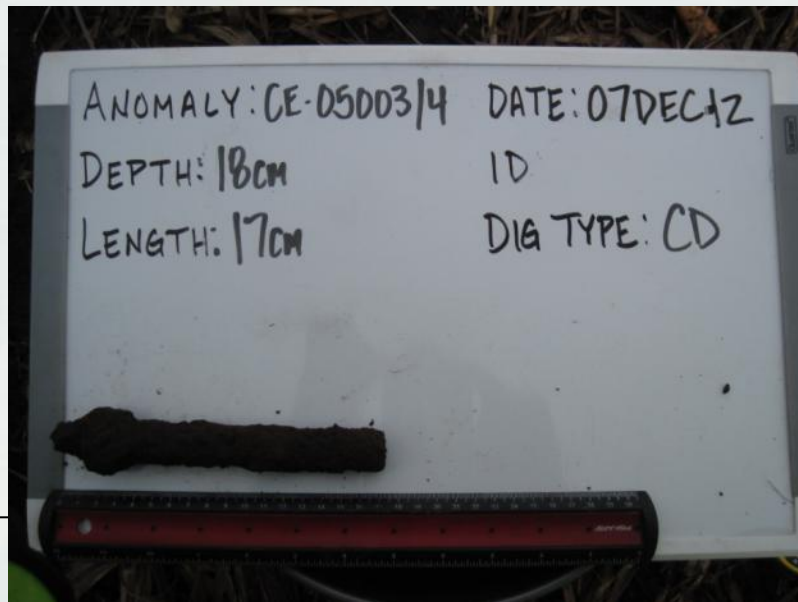 ANOMALY: CE-05003/4 DATE: 07DEC12
DEPTH: 18CM 1D
LENGTH: 17CM DIG TYPE: CD